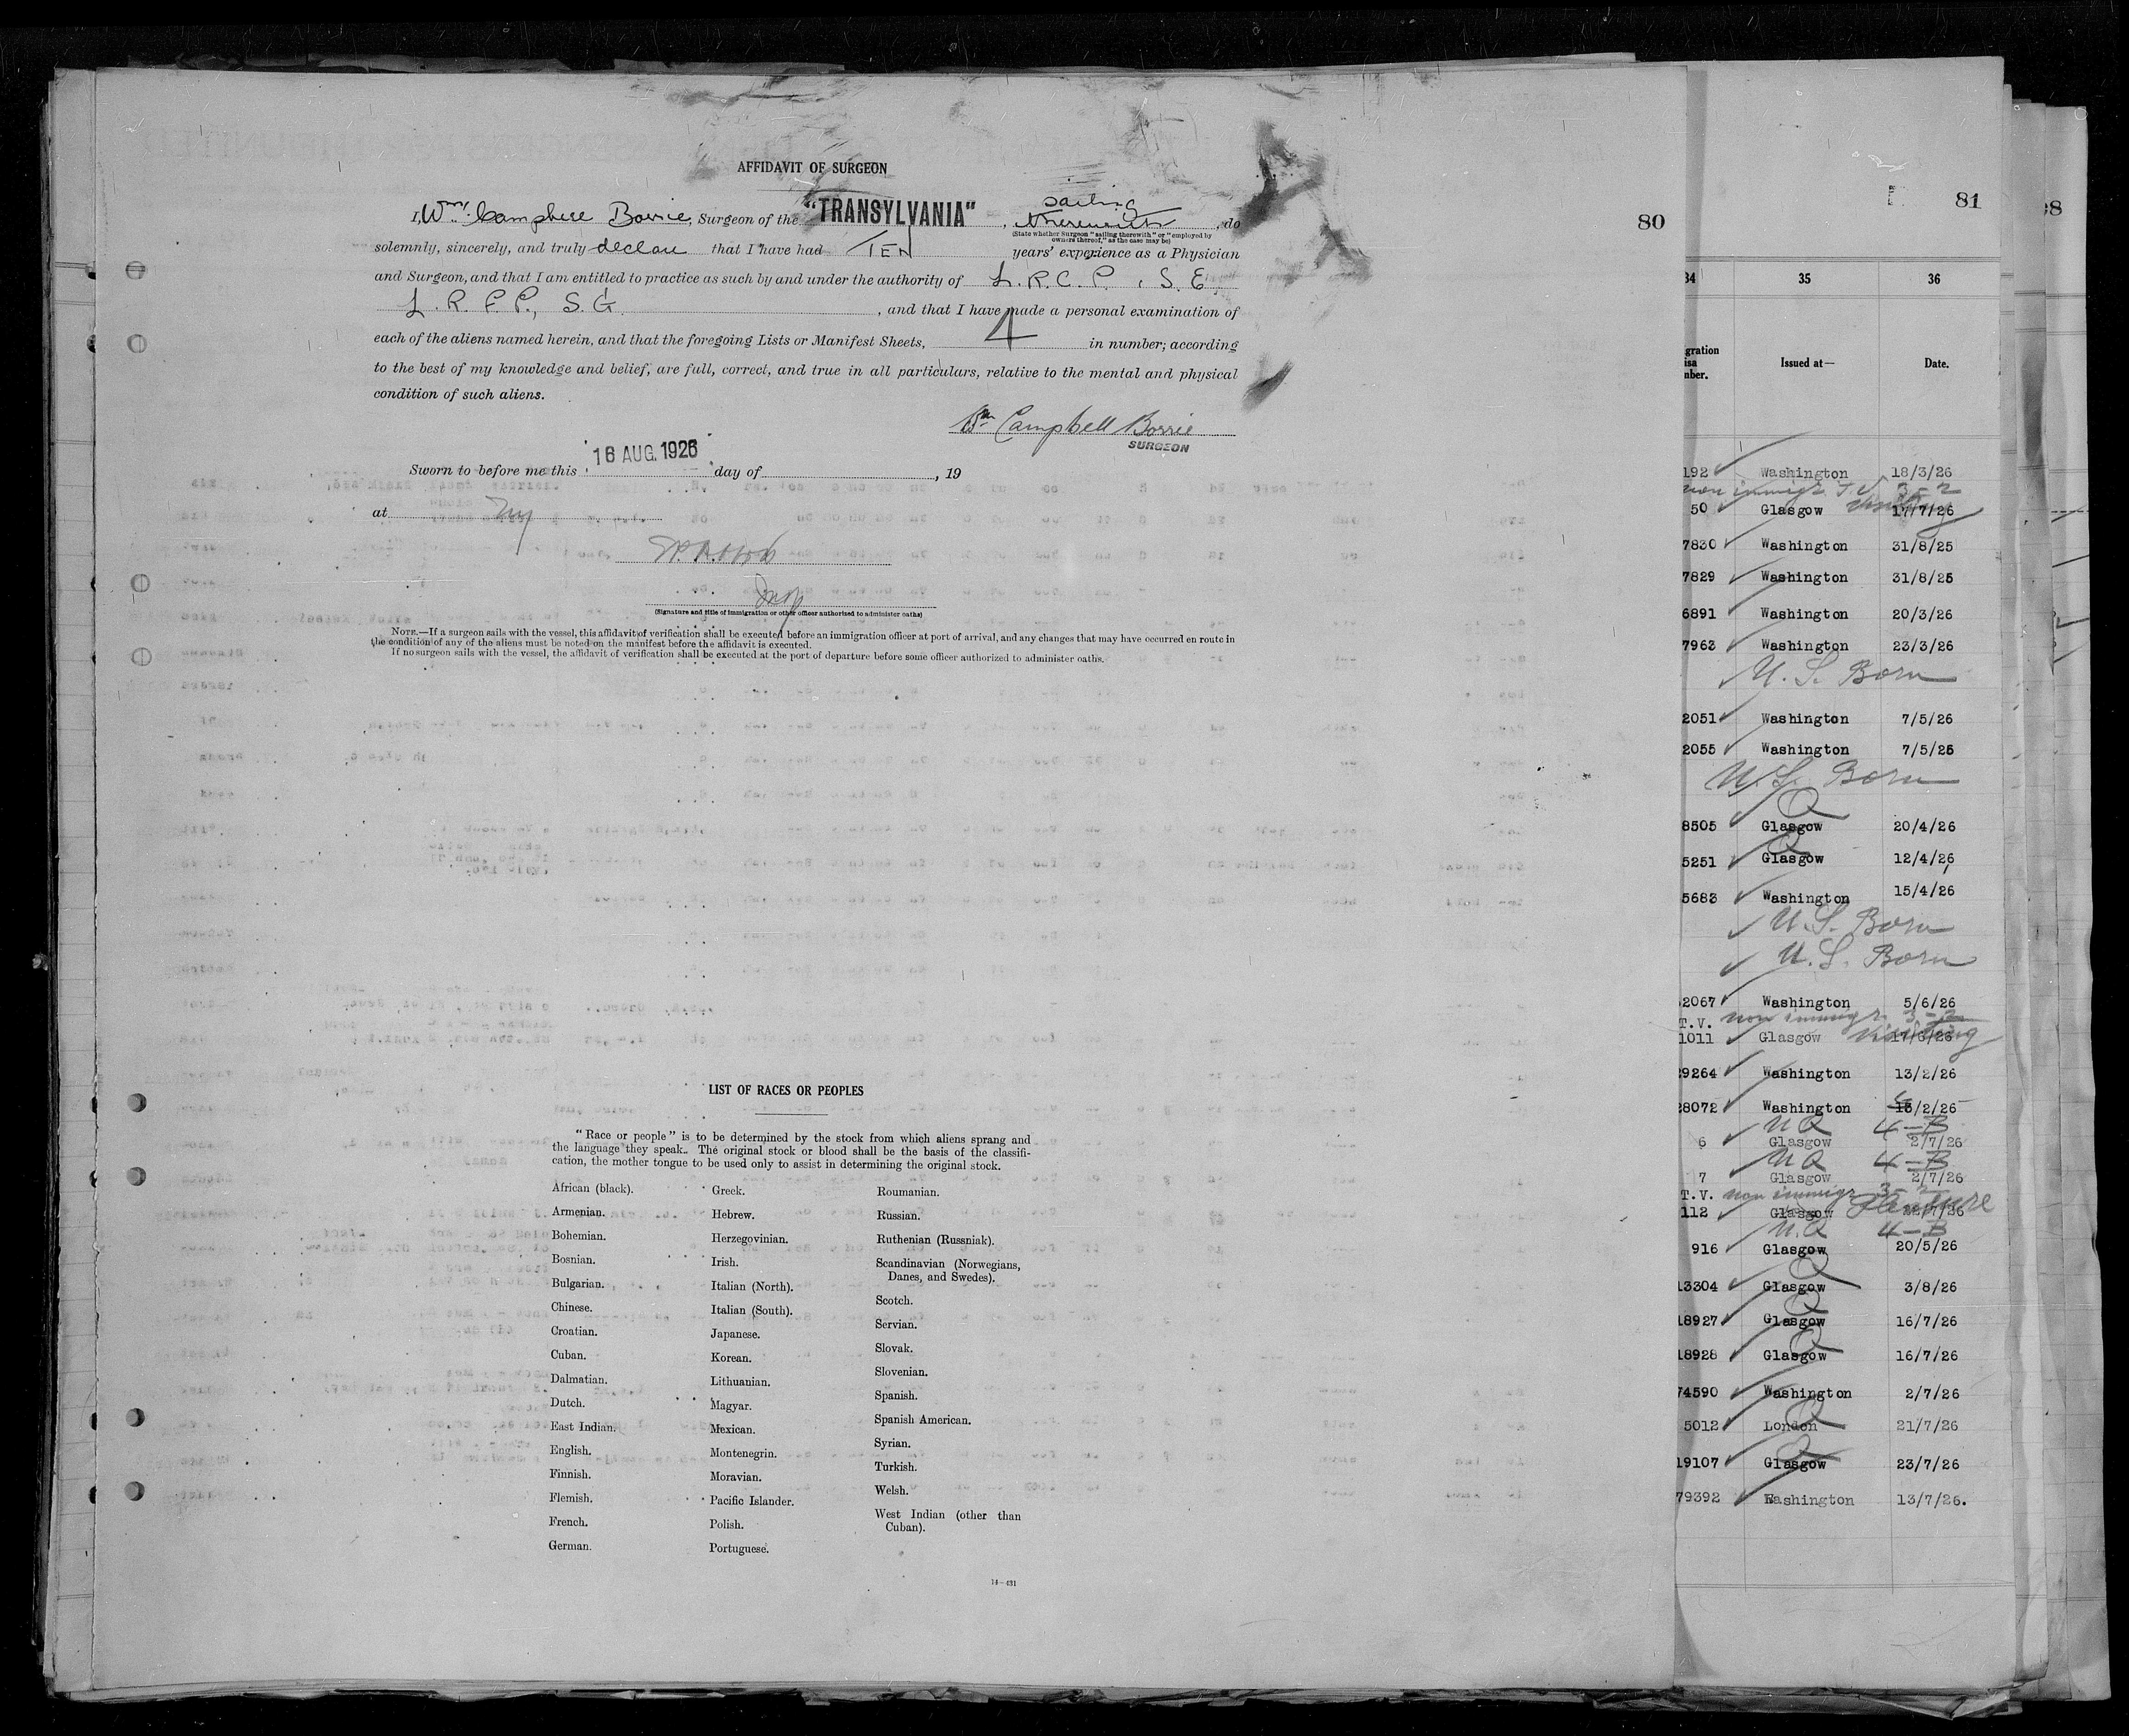 AFFIDAVIT OF SURGEON
I, Wm. Campbell Borrie, Surgeon of the "TRANSYLVANIA", sailing therewith, do
(State whether Surgeon "sailing therewith" or "employed by owners thereof," as the case may be)
solemnly, sincerely, and truly declare that I have had TEN years' experience as a Physician
and Surgeon, and that I am entitled to practice as such by and under the authority of L.R.C.P., S.E.
L.R.F.P., S.G., and that I have made a personal examination of
each of the aliens named herein, and that the foregoing Lists or Manifest Sheets, 4 in number; according
to the best of my knowledge and belief, are full, correct, and true in all particulars, relative to the mental and physical
condition of such aliens.
Wm Campbell Borrie
SURGEON
Sworn to before me this 16 AUG. 1926 day of , 19
at NY
Insp
(Signature and title of immigration or other officer authorized to administer oaths)
NOTE.—If a surgeon sails with the vessel, this affidavit of verification shall be executed before an immigration officer at port of arrival, and any changes that may have occurred en route in
the condition of any of the aliens must be noted on the manifest before the affidavit is executed.
If no surgeon sails with the vessel, the affidavit of verification shall be executed at the port of departure before some officer authorized to administer oaths.
LIST OF RACES OR PEOPLES
"Race or people" is to be determined by the stock from which aliens sprang and
the language they speak. The original stock or blood shall be the basis of the classifi-
cation, the mother tongue to be used only to assist in determining the original stock.
African (black).
Armenian.
Bohemian.
Bosnian.
Bulgarian.
Chinese.
Croatian.
Cuban.
Dalmatian.
Dutch.
East Indian.
English.
Finnish.
Flemish.
French.
German.
Greek.
Hebrew.
Herzegovinian.
Irish.
Italian (North).
Italian (South).
Japanese.
Korean.
Lithuanian.
Magyar.
Mexican.
Montenegrin.
Moravian.
Pacific Islander.
Polish.
Portuguese.
Roumanian.
Russian.
Ruthenian (Russniak).
Scandinavian (Norwegians,
Danes, and Swedes).
Scotch.
Servian.
Slovak.
Slovenian.
Spanish.
Spanish American.
Syrian.
Turkish.
Welsh.
West Indian (other than
Cuban).
14—431
80
81
34 35 36
gration
isa
nber.
Issued at—
Date.
192 Washington 18/3/26
non immigr. T.V. 3-2
50 Glasgow 17/7/26
7830 Washington 31/8/25
7829 Washington 31/8/25
6891 Washington 20/3/26
7963 Washington 23/3/26
U.S. Born
2051 Washington 7/5/26
2055 Washington 7/5/26
U.S. Born
Q
8505 Glasgow 20/4/26
Q
5251 Glasgow 12/4/26
5683 Washington 15/4/26
U.S. Born
U.S. Born
2067 Washington 5/6/26
T.V. non immigr. 3-2
1011 Glasgow Visiting
29264 Washington 13/2/26
28072 Washington /2/26
NQ 4-B
6 Glasgow 2/7/26
NQ 4-B
7 Glasgow 2/7/26
T.V. non immigr 3-2
112 Glasgow Pleasure
N.Q 4-B
916 Glasgow 20/5/26
Q
13304 Glasgow 3/8/26
Q
18927 Glasgow 16/7/26
Q
18928 Glasgow 16/7/26
74590 Washington 2/7/26
Q
5012 London 21/7/26
Q
19107 Glasgow 23/7/26
79392 Washington 13/7/26.